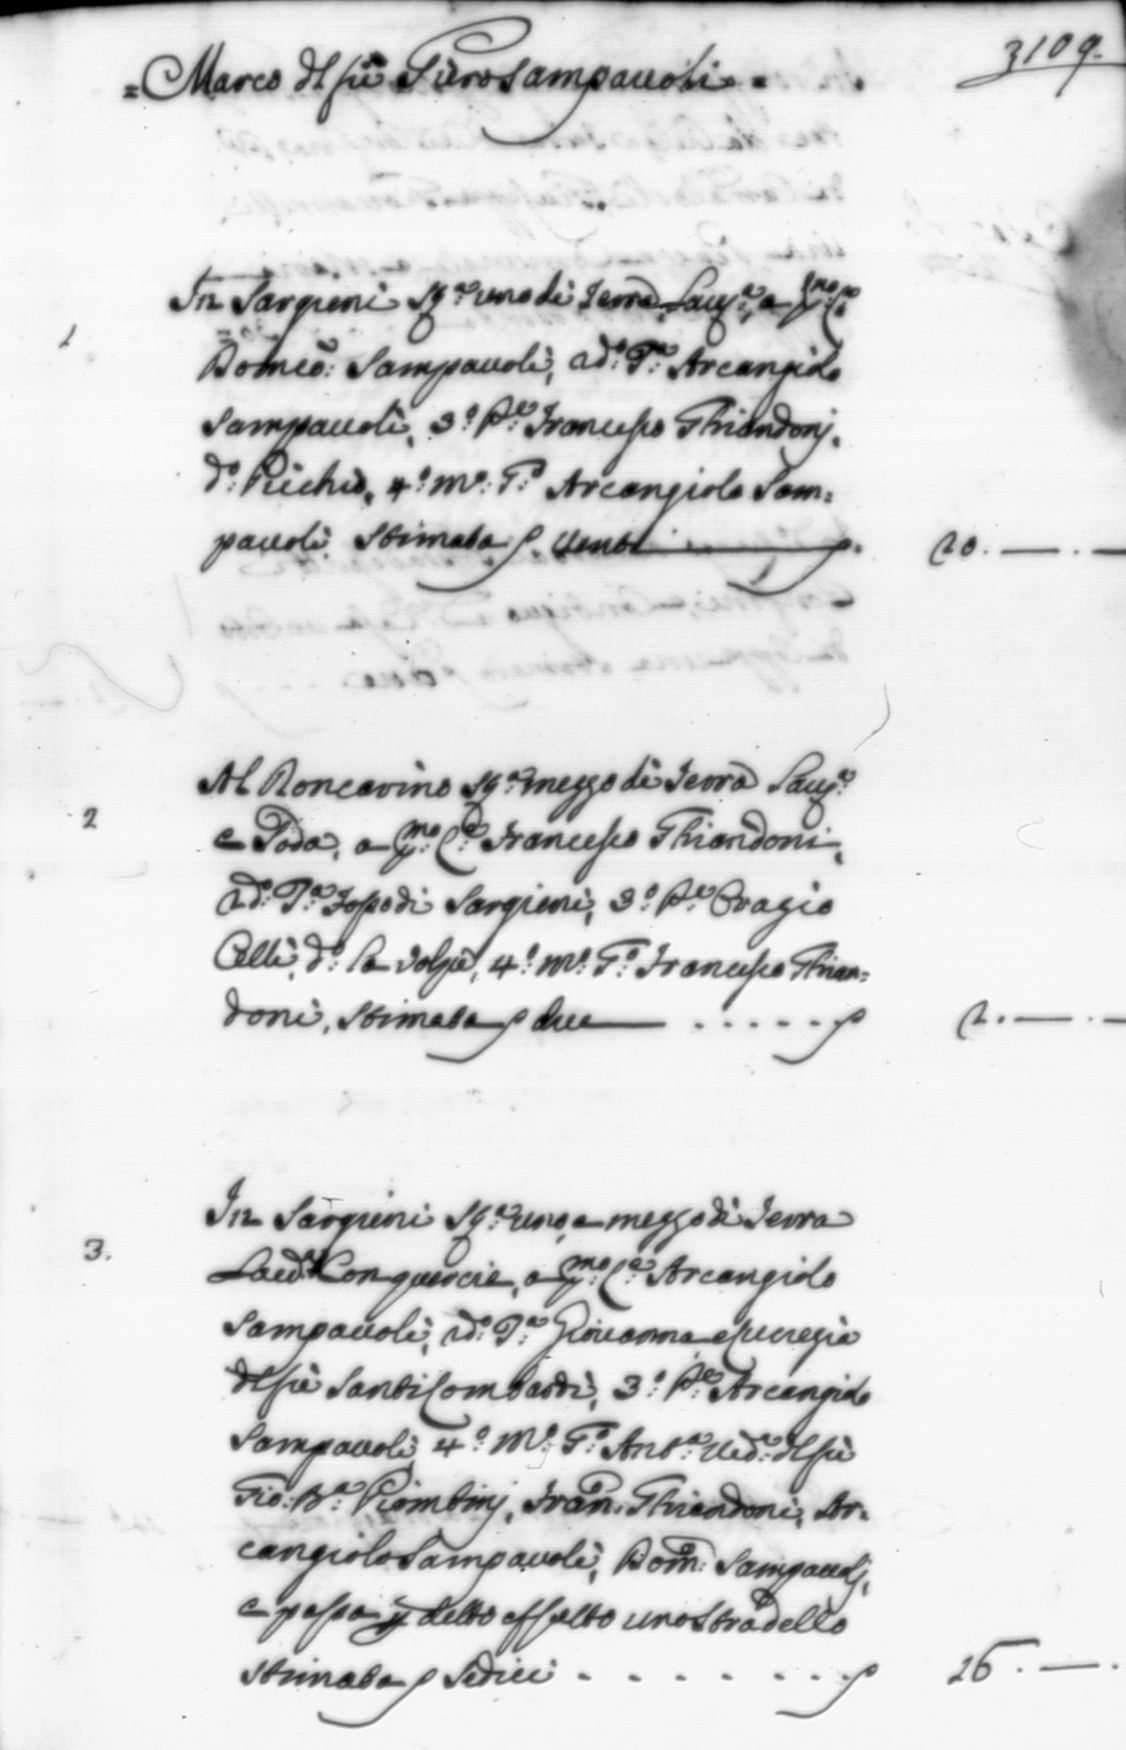 = Marco dl fù Piero Sampauoli =
3109.
1
In Sargieni Sq.ª uno di Terra Lau.ª, a p.mo C.ª
Domco: Sampauoli, 2d.º T.ª Arcangiolo
Sampauoli, 3.º P.e Francesco Ghiandonj,
d.º Picchio, 4.º M.º T.º Arcangiolo Sam=
pauoli stimata s venti
20. — . —
2
Al Roncavino Sq.ª mezzo di Terra Lau.ª
e Soda, a p.mo C.ª Francesco Ghiandoni,
2d.º T.ª Fosso di Sargieni, 3.º P.e Orazio
Celli, d.º la Volpe, 4.º M.º T.º Francesco Ghian=
doni, stimata s due . . . . . s
2. — . —
3.
In Sargieni Sq.ª uno, e mezzo di Terra
Lau.ª Con quercie, a p.mo C.ª Arcangiolo
Sampauoli, 2d.º T.ª Giouanna e Lucrezia
dl fù Santi Lombardi, 3.º P.e Arcangiolo
Sampauoli, 4.º M.º T.º Ant.ª Ued.ª dl fù
Gio: Bª Piombinj, Fran: Ghiandoni, Ar=
cangiolo Sampauoli, Dom: Sampauolj,
e passa p detto effetto uno stradello
stimata s Sedici . . . . . . . s
16. — .